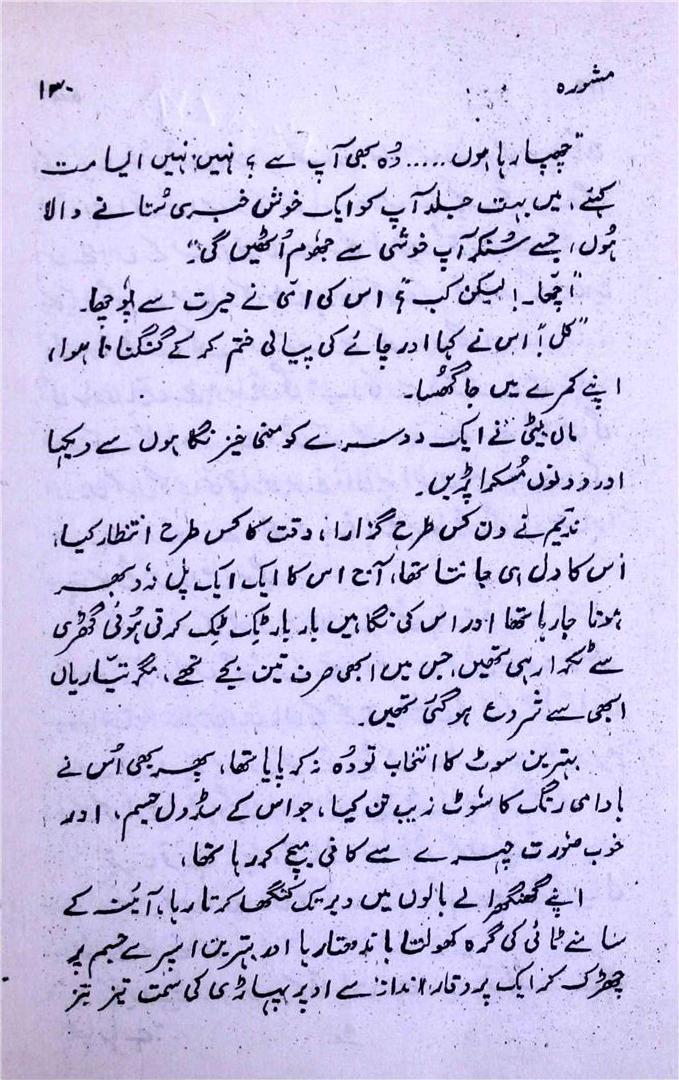 مشورہ ۱۳۰
"چھپا رہا ہوں ..... وُہ بھی آپ سے ؟ نہیں نہیں ایسا مت
کہئے، میں بہت جلد آپ کو ایک خوش خبری سُنانے والا
ہُوں، جسے سُنکر آپ خوشی سے جھوم اُٹھیں گی"۔
"اچھّا۔! لیکن کب"؟ اس کی امّی نے حیرت سے پُوچھا۔
"کل"! اس نے کہا اور چائے کی پیالی ختم کر کے گنگناتا ہوا،
اپنے کمرے میں جا گھُسا۔
ماں بیٹی نے ایک دوسرے کو معنی خیز نگاہوں سے دیکھا
اور دونوں مُسکرا پڑیں۔
ندیم نے دن کس طرح گزارا، وقت کا کس طرح انتظار کیا،
اُس کا دل ہی جانتا تھا، آج اس کا ایک ایک پل دوبھر
ہوتا جا رہا تھا اور اس کی نگاہیں بار بار ٹِک ٹِک کرتی ہُوئی گھڑی
سے ٹکرا رہی تھیں، جس میں ابھی صرف تین بجے تھے، مگر تیّاریاں
ابھی سے شروع ہو گئی تھیں۔
بہترین سوٹ کا انتخاب تو وُہ نہ کر پایا تھا، پھر بھی اُس نے
بادامی رنگ کا سُوٹ زیب تن کیا، جو اس کے سڈول جسم، اور
خوب صُورت چہرے سے کافی میچ کر رہا تھا،
اپنے گھنگھرالے بالوں میں دیر تک کنگھا کرتا رہا، آئینہ کے
سامنے ٹائی کی گرہ کھولتا باندھتا رہا اور بہترین اسپرے جسم پر
چھڑک کر ایک پر وقار انداز سے اوپر پہاڑی کی سمت تیز تیز